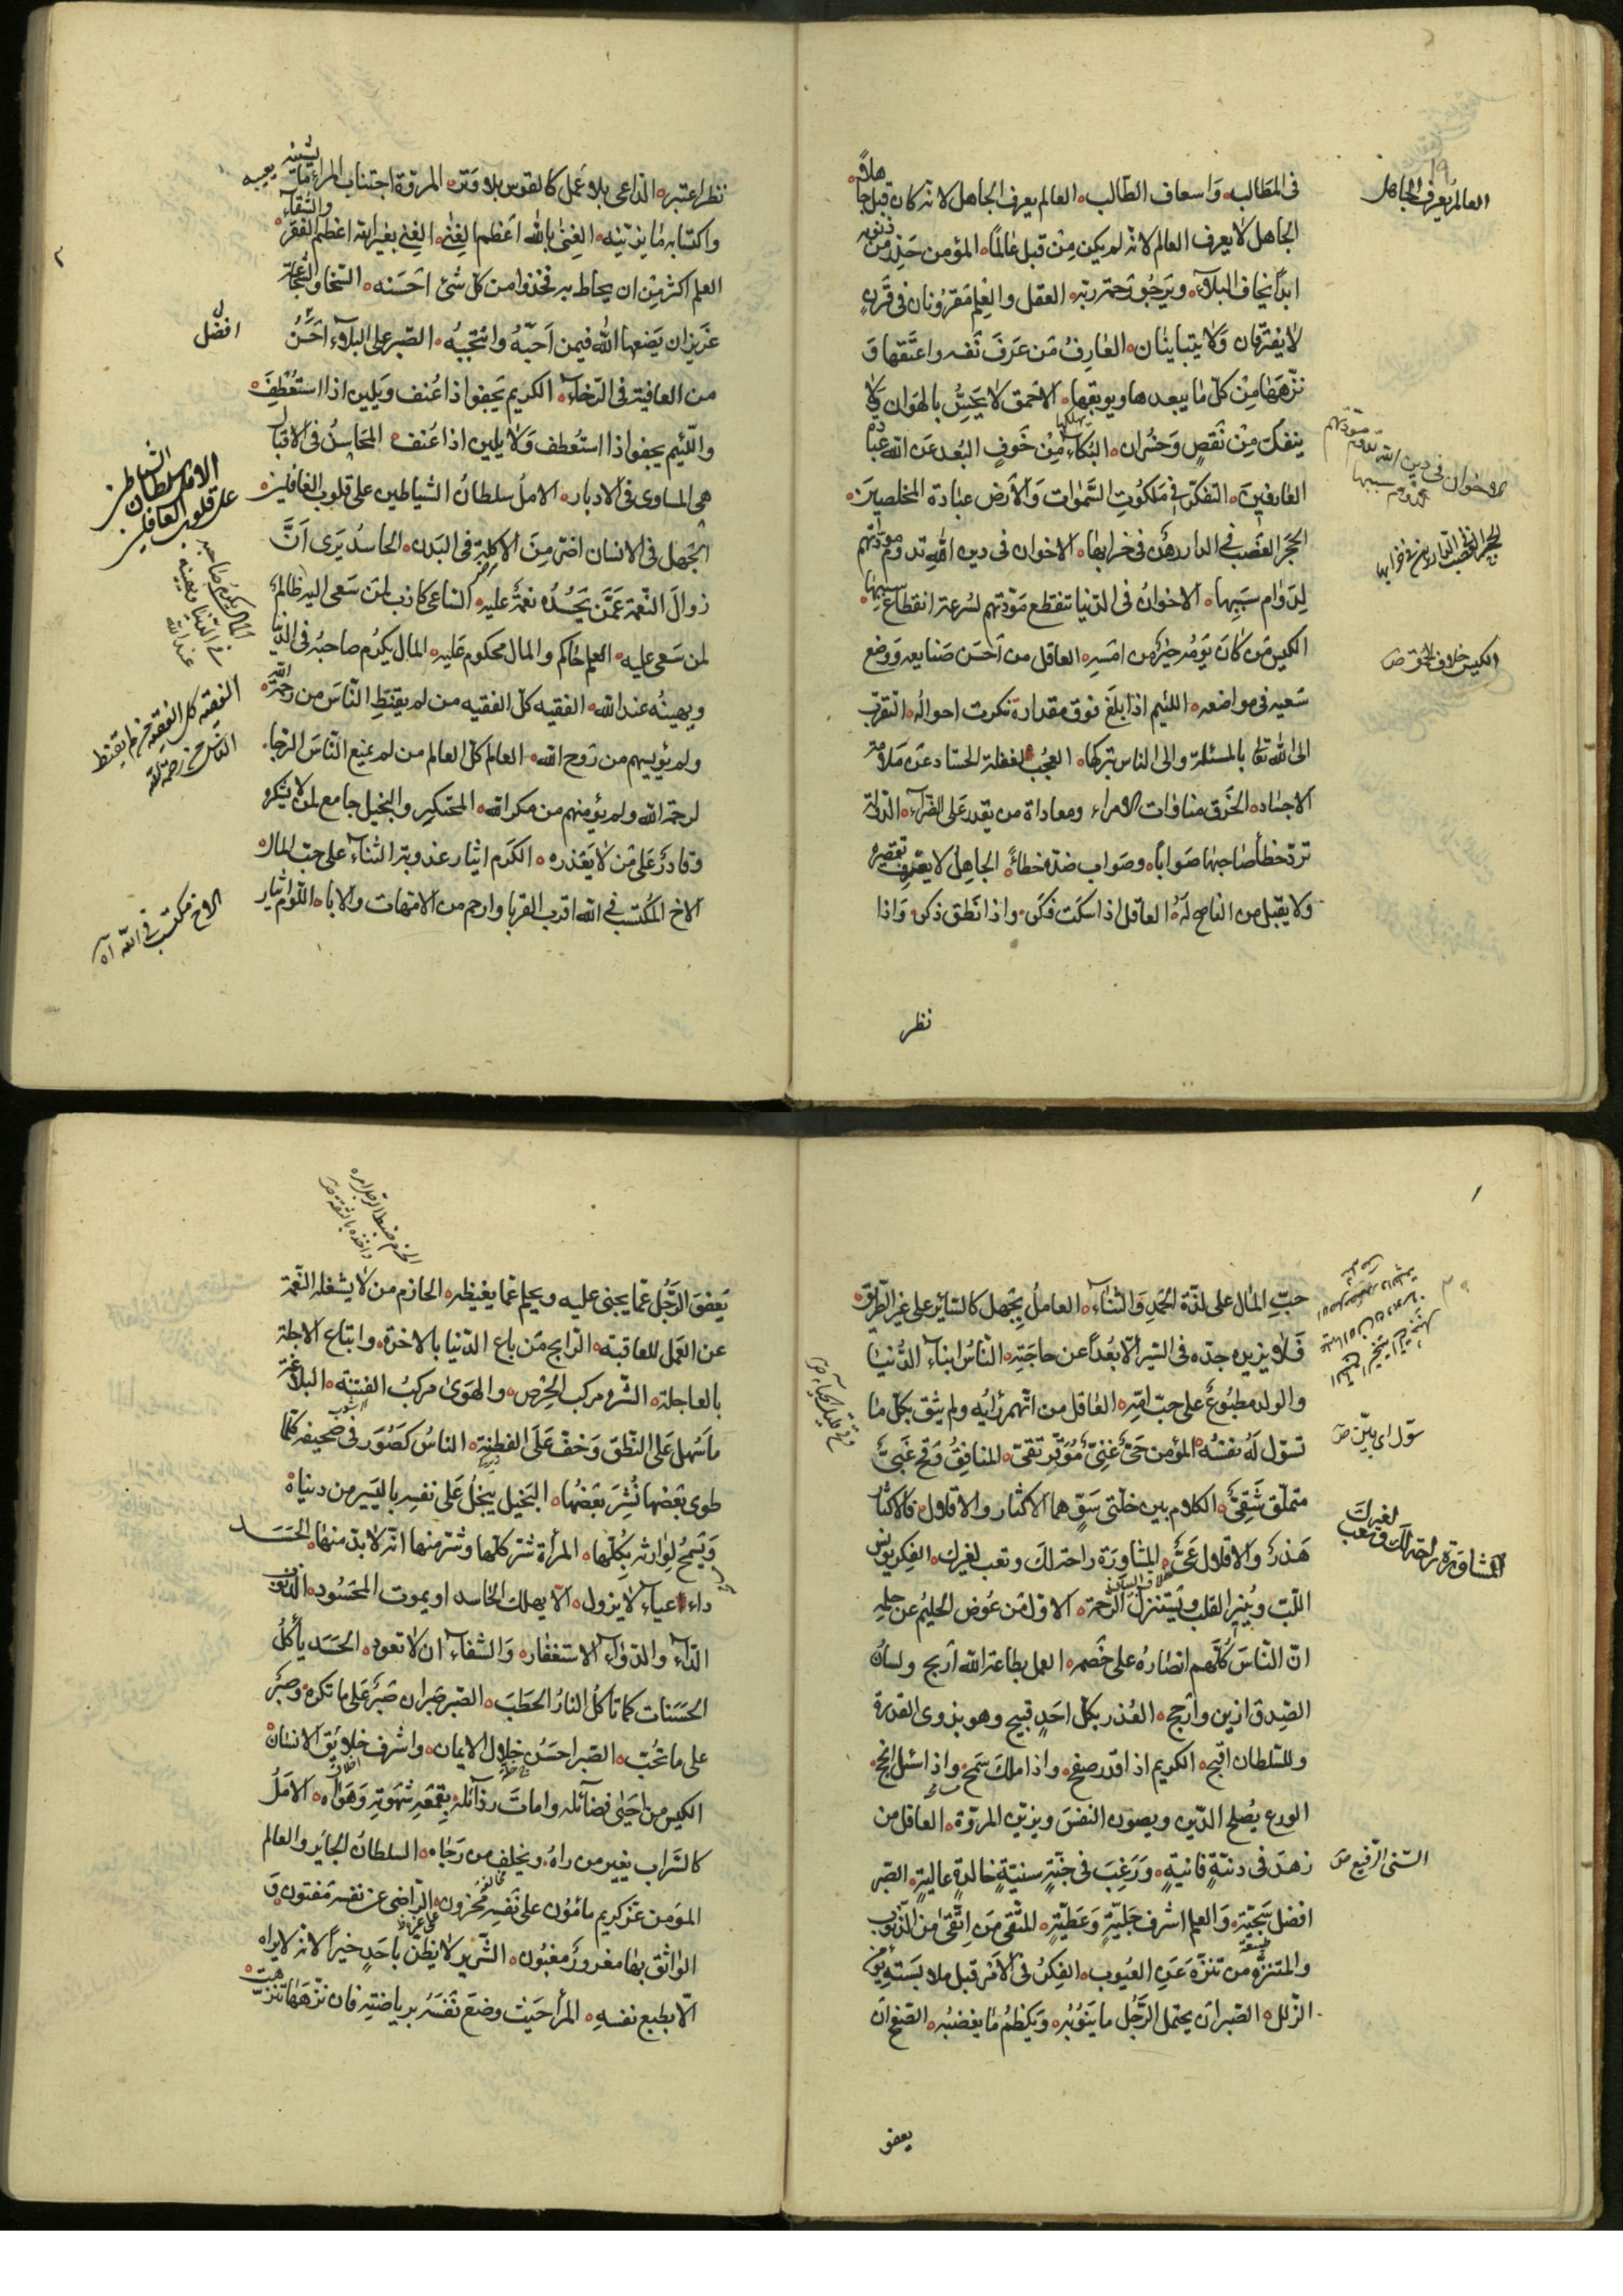 العالم يعرف الجاهل
فى المطالب وَاسعاف الطّالب العالم يعرف الجاهل لانّه كان قبل جاهلاً
الجاهل لا يعرف العالم لانّه لم يكن مِنْ قبل عٰالمًا المؤمن حَذِر من ذنوبه
ابدًا يخاف البلآء ويَرجُو رَحمة ربّه العقل والعِلم مَقرُونان فى قَرَنٍ
لٰا يفترقان وَلٰا يتباينٰان العٰارفُ مَن عَرَفَ نَفسه واعتَقها وَ
نزّهَهٰا مِنْ كلّ مٰا يبعدها ويوبقها الاحمق لا يَحُسُّ بالهَوان وَلٰا
يهلكها
ينفكّ مِنْ نَقصٍ وَخُسْران البُكاء مِنْ خَوفِ البُعد عَن الله عبادة
العٰارفينَ التفكّر فى مَلَكُوتِ السَّمٰوات وَالأرض عبادة المخلصين
الاخوان فى دين الله تدوم مودّتهم لدوام سببها
الحَجَر الغَصْب فى الدار رَهْن فى خرابهٰا الاخوان فى دين الله تدوم مودّتهم
الحجر الغصب فى الدار رهن فى خرابها
لِدَوٰام سَبَبِها الاخوانُ فى الدّنيا تنقطع مَوَدّتهم لسُرعة انقطاع سببهٰا
الكيس مَن كانَ يَومُه خيرًا من امْسِه العاقل من اَحسَن صَنايعه وَوضع
الكيس خلاف الحُمق ص
سَعيه فى مواضعه اللئيم اذا بلَغَ فوق مقداره تنكرت احوالُه التقرّب
الى الله تعٰا بالمسئلة والى الناس بتركها العجَبُ لغفلة الحسّاد عَن سَلامة
الاجسٰاد الخَرَق منافات الامراء ومعاداة من يقدر عَلى الضرّاء الدّولة
تردّ خطأ صٰاحبهٰا صَوابًا وصَواب ضدّه خطاءً الجاهِل لا يعرف تقصيره
ولا يقبل من الناصح لَهُ العاقل اذا سكَت فكّر واذا نَطق ذكر وَاذا
نظر
نظر اعتبر الدّاعى بلا عَمل كالقوس بلا وَتَر المروّة اجتناب المراء مٰا يشينه
واكتسٰابه مٰا يزيّنه الغِنىٰ بالله اعظم الغِنٰى الغِنٰى بغير الله اعظم الفقر والشقآء
العلم اكثر مِنْ ان يحاط به فخُذُوا من كلّ شئ احْسَنه السّخاوة والشّجاعة
غَرٰيزان يَضعها الله فيمن اَحبّهُ وامْتحَنهُ الصّبر على البلآء احسَنُ
افضل
من العافية فى الرّخاء الكريم يَجفو اذا عُنف وَيلين اذا استُعْطِفَ
واللّئيم يجفو اذا استُعطف وَلا يلين اذا عُنفَ المحَاسنُ فى الاقبال
هى المسٰاوى فى الادبار الاملُ سلطانُ الشيٰاطين على قلوب الغٰافلين
الامل سلطان الشياطين
على قلوب الغافلين
الجَهل فى الانسان اضرّ مِنَ الاكلة فى البَدن الحٰاسدُ يَرى اَنّ
زوالَ النّعمة عَمَّن يَحْسُدُه نعمةٌ عليه السّاعى كاذب لمَن سَعى اليه ظالمٌ
لمن سَعى عليه العلم حٰاكم والمال محكوم عَليه المٰال يكرُم صاحبُه فى الدّنيا
المال يكرم صاحبه
فى الدّنيا ويهينه
عند الله
ويهينُه عند الله الفقيه كلّ الفقيه من لم يقنّطِ النّاسَ من رحمة الله
الفقيه كل الفقيه من لم يقنط
الناس من رحمة الله
ولم يُؤيسهم من رَوح الله العالم كلّ العالم من لم يمنع النّاسَ الرّجا
لرحمة الله ولم يؤمنهم من مكر الله المحتكر والبخيل جامع لمن لا يشكره
وقادمٌ عَلى مَن لٰا يَعْذره الكرَم ايثٰار عذوبة الثّناء على حبّ المال
الاخ المكتسَب فى الله اقرب القربا وارحم من الامّهات والاباء اللّوم ايثار
الاخ مكتسب فى الله آه
حبّ المٰال على لذّة الحَمدِ وَالثّنآء العاملُ بجَهل كالسّاير على غير الطّريق
فَلا يزيده جدّه فى السّير الّا بُعدًا عن حاجَته النّاسُ ابناء الدُّنيٰا
والولد مطبُوع على حبّ امّه العٰاقل من اتّهم رأيَه ولم يثق بكلّ مٰا
تسوّل لَهُ نفسُه المؤمن حَيٌّ غنيٌّ مُوَقّر تقىّ المنافقُ وَقح غَبىٌّ
سوّل اى زيّن ص
متملّق شَقىٌّ الكلام بين خلّتى سَوْءٍ هما الاكثار والاقلال فالاكثار
هَذرٌ والاقلال عَىٌّ المشاورَة راحة لكَ وتعب لغيرك الفِكر يونس
المشاورة راحة لك وتعب
لغيرك
اللّبّ ويُنير القلب ويَستنزلُ الرّحمة الاوّل مَن عُوض الحَليم عن حلمِه
انّ النّاسَ كُلَّهم انصٰارهُ على خَصمه العمل بطاعة الله اَربح ولسٰانُ
الصّدق ازين واَنجح الغُدر بكلّ احَدٍ قبيح وهو بذوى القدرة
وللسّلطان اقبح الكريم اذا قدر صفح واذا ملكَ سَمح واذا سُئل انجح
الورع يُصلح الدّين ويصون النفسَ ويزيّن المروّة العاقل من
زهدَ فى دنيّةٍ فانيةٍ وَرَغبَ فى جَنّةٍ سنيّةٍ خٰالدةٍ عاليةٍ الصّبر
السّنى الرّفيع ص
افضل سَجيّةٍ وَالعِلم اشرف حِليَةٍ وَعَطيّةٍ المتّقى مَنِ اتّقىٰ من الذّنوب
والمتنزّه من تنزّهَ عَنِ العيُوب الفِكرُ فى الاَمر قبل ملابَسَته يؤمن
الزّلل الصّبر ان يحتمل الرّجُل ما يَنُوبُه وَيَكظمُ مٰا يغضبُه الصّفح ان
يعفو
الحزم ضبط الرّجل امره
واخذه بالثّقة ص
يَعفوَ الرَّجُل عَمّا يجنى عليه ويحلم عَمّا يغيظه الحازم من لٰا يشغله النّعمة
عن العَمل للعاقبة الرّابح مَن باع الدّنيا بالاخرة وابتاع الاجلة
بالعاجلة الشّره مركب الحِرْص والهَوىٰ مركبُ الفتنة البلاغة
ما سَهل عَلى النّطق وَخفّ عَلَى الفطنة الناسُ كَصُوَر فى صحيفه كلّما
طوى بَعضها نُشِرَ بَعضُها البَخيل يبخلُ عَلى نفسه باليَسير من دنياه
وَيَسمحُ لِوٰارثه بكلّها المرأة شرّ كلّها وشرّ منها انّه لا بدّ منها الحَسَد
داء عيٰاء لا يزول الّا بهلك الحٰاسد او بموت المحسُود الذّنوب
الدّاء والدّواء الاستغفار وَالشفاء ان لٰا تعود الحَسَد يأكلُ
الحَسَنات كما تأكل النارُ الحطَبَ الصّبر صَبران صَبرٌ عَلى ما تكره وصَبرٌ
على ما تحُبّ الصّبر احسَنُ خلال الايمان واشرف خلائق الانسٰان
الكيس من احيىٰ فضآئله واماتَ رذآئله بقمعهِ شهَوَته وَهَواه الاَمَلُ
كالسَّراب يغير من راهُ ويخلف من رَجٰاه السلطانُ الجٰاير والعالم
المؤمن عزّ كريم مأمُون على نَفسه محزون الرّاضى عن نفسه مَفتون وَ
الوٰاثق بهٰا مغرورٌ مغبُون الشّرّير لا يظنّ باحَدٍ خيرًا لانّه لا يراه
الّا بطبع نفسهِ المرأ حَيث وضعَ نَفسَهُ برياضتِه فان نزّهَهٰا تنزّهت